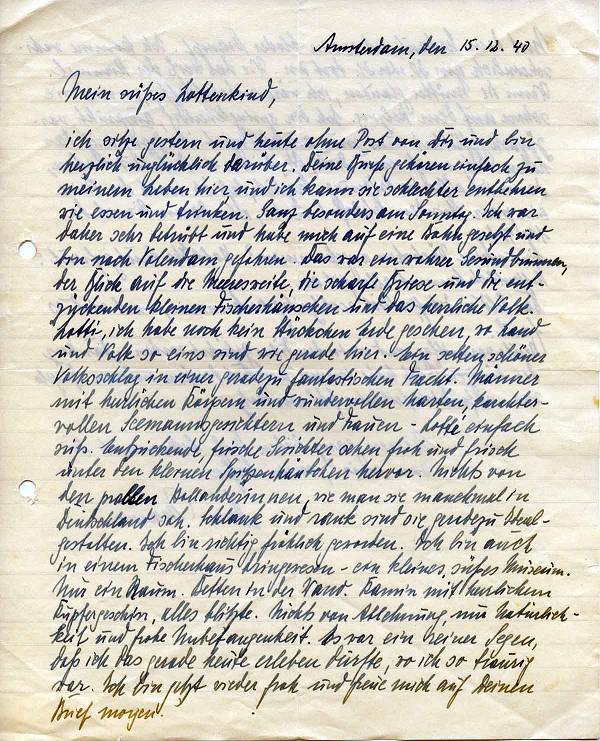 Amsterdam, den 15.12.40
Mein süßes Lottenkind,
ich sitze gestern und heute ohne Post von Dir und bin
herzlich unglücklich darüber. Deine Briefe gehören einfach zu
meinem Leben hier und ich kann sie schlechter entbehren
wie essen und trinken. Ganz besonders am Sonntag. Ich war
daher sehr betrübt und habe mich auf eine Bahn gesetzt und
bin nach Volendam gefahren. Das war ein wahrer Gesundbrunnen,
der Blick auf die Meeresweite, die scharfe Briese und die ent-
zückenden kleinen Fischerhäuschen und das herrliche Volk.
Lotti, ich habe noch kein Stückchen Erde gesehen, wo Land
und Volk so eins sind wie gerade hier. Ein selten schöner
Volksschlag in einer geradezu fantastischen Tracht. Männer
mit herrlichen Körpern und wundervollen harten, karakter-
vollen Seemannsgesichtern und Frauen - Lotte einfach
süß. Entzückende, frische Gesichter sehen froh und frisch
unter den kleinen Spitzenhäubchen hervor. Nichts von
den prallen Holländerinnen, wie man sie manchmal in
Deutschland sah. Schlank und rank sind sie geradezu Ideal-
gestalten. Ich bin richtig fröhlich geworden. Ich bin auch
in einem Fischerhaus drin gewesen - ein kleines, süßes Museum.
Nur ein Raum. Betten in der Wand. Kamin mit herrlichem
Kupfergeschirr, alles blitzte. Nichts von Ablehnung, nur Natürlich-
keit und frohe Unbefangenheit. Es war ein reiner Segen,
daß ich das gerade heute erleben durfte, wo ich so traurig
war. Ich bin jetzt wieder froh und freue mich auf Deinen
Brief morgen.